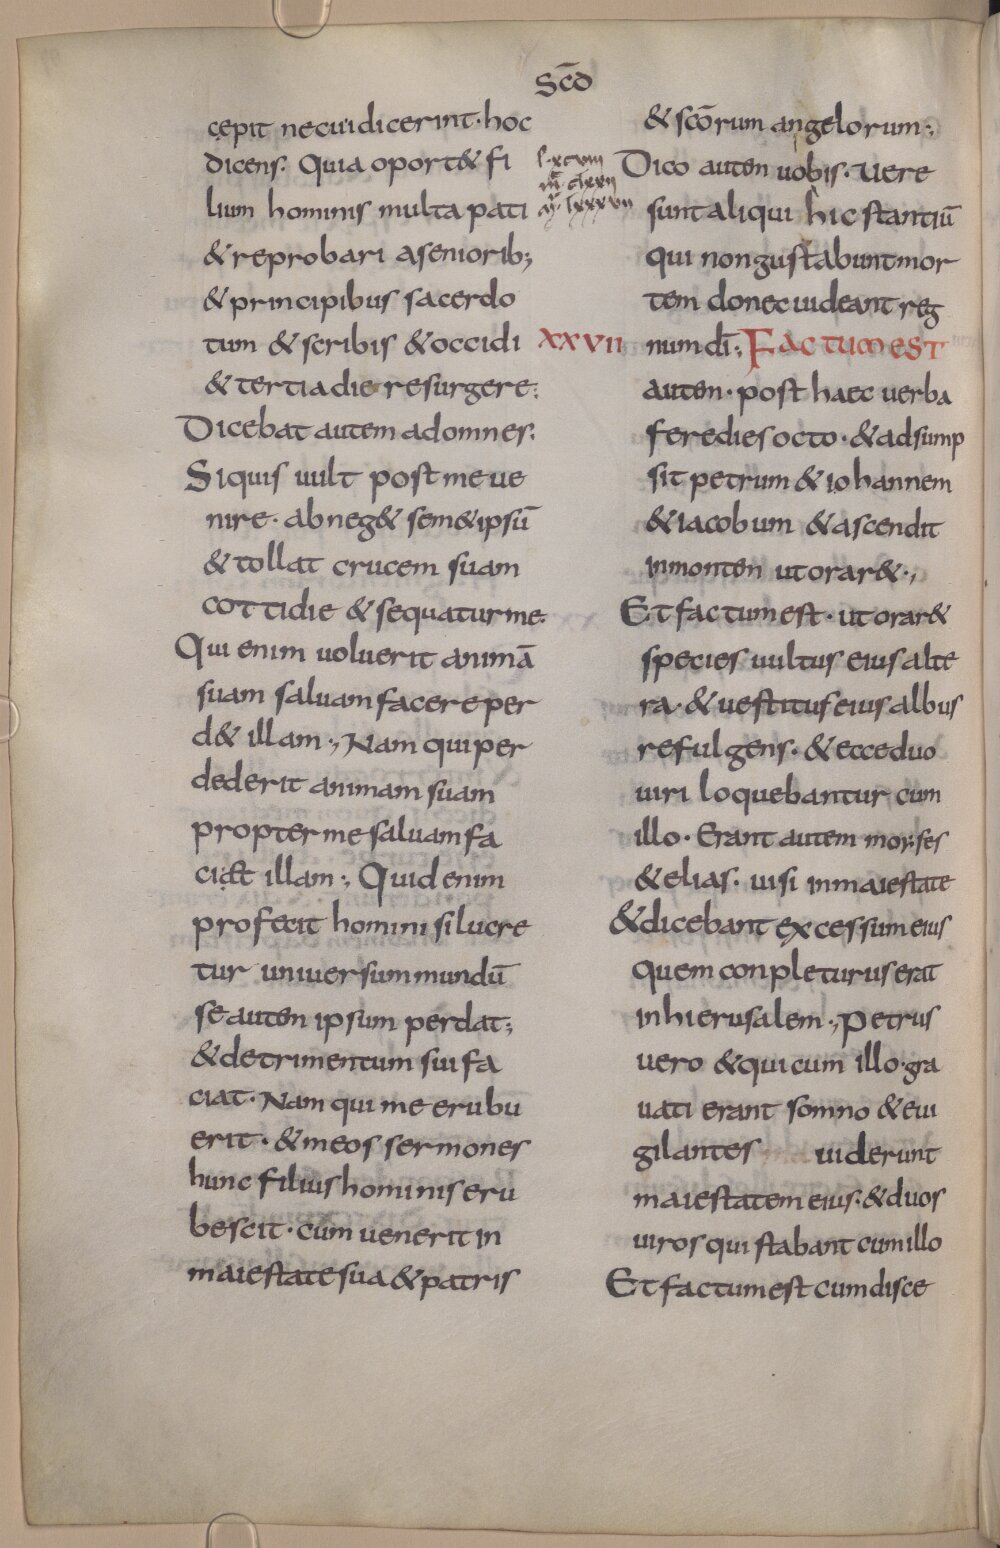 Scd̄
cępit necui dicerint · hoc
dicens: Quia oport& fi
lium hominis multa pati
& reprobari asenioribꝫ
& principibus sacerdo
tum & scribis & occidi
& tertia die resurgere:
Dicebat autem adomnes:
Siquis uult post me ue
nire · abneg& sem&ipsū
& tollat crucem suam
cottidie & sequatur me·
Qui enim uoluerit animā
suam saluam facere per
d& illam ·, Nam qui per
dederit animam suam
propter me saluam fa
ci&t illam ·, Quid enim
profecit homini si lucre
tur uniuersum mundū
se autem ipsum perdat;
& detrimentum sui fa
ciat · Nam qui me erubu
erit · & meos sermones
hunc filius hominis eru
bescit · cum uenerit in
maiestate sua & patris
& scōrum angelorum:,
l· xcviii
m̄· clxxii
lxxxvii
Dico autem uobis · Uere
sunt aliqui hic stantiū
qui non gustabunt mor
tem donec uideant reg
XXVII num dī ·, FACTUM EST
autem · post haec uerba
fere dies octo · & adsump
sit petrum & iohannem
& iacobum & ascendit
inmontem ut orar& ·,
Et factum est · ut orar&
species uultus eius alte
ra · & uestitus eius albus
refulgens · & ecce duo
uiri loquebantur cum
illo · Erant autem moyses
& elias · uisi inmaiestate
& dicebant excessum eius
quem conpleturus erat
in hierusalem ·, Petrus
uero & qui cum illo · gra
uati erant somno & eui
gilantes uiderunt
maiestatem eius · & duos
uiros qui stabant cum illo
Et factum est cum disce